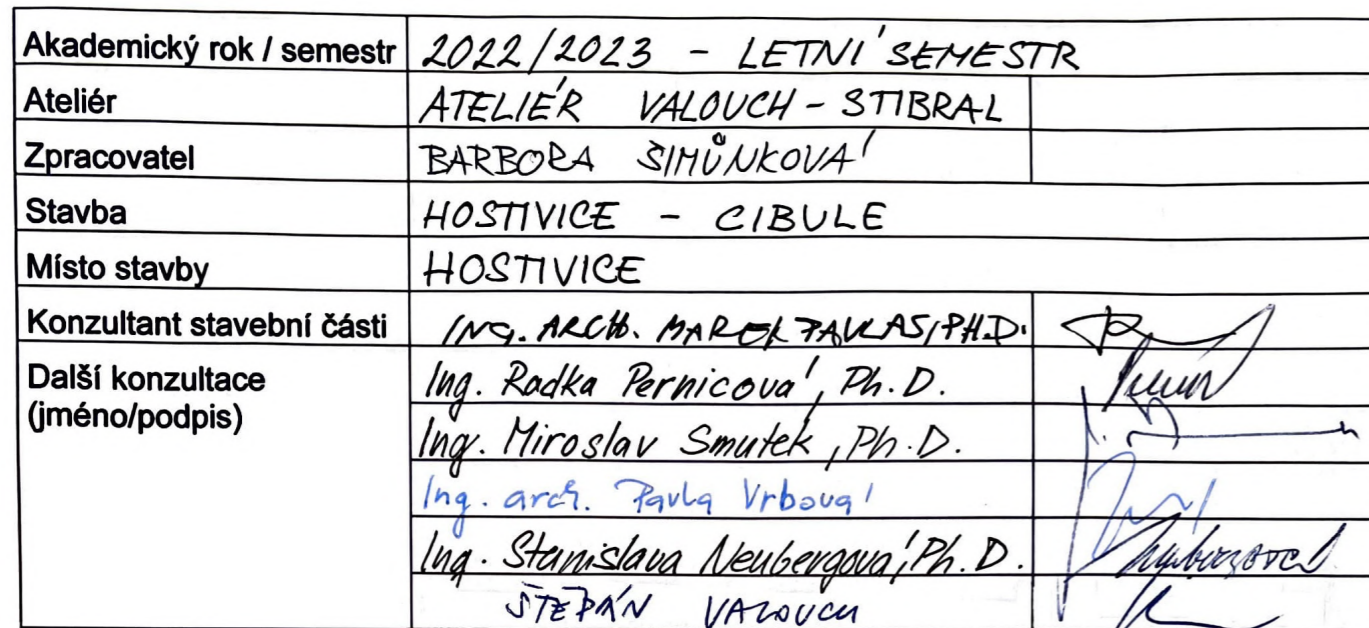 Akademický rok / semestr 2022/2023 - LETNÍ SEMESTR
Ateliér ATELIÉR VALOUCH - STIBRAL
Zpracovatel BARBORA ŠIMŮNKOVÁ
Stavba HOSTIVICE - CIBULE
Místo stavby HOSTIVICE
Konzultant stavební části ING. ARCH. MAREK PAVLAS, PH.D.
Další konzultace Ing. Radka Pernicová, Ph.D.
(jméno/podpis)
Ing. Miroslav Smutek, Ph.D.
Ing. arch. Pavla Vrbová
Ing. Stanislava Neubergová, Ph.D.
ŠTĚPÁN VALOUCH